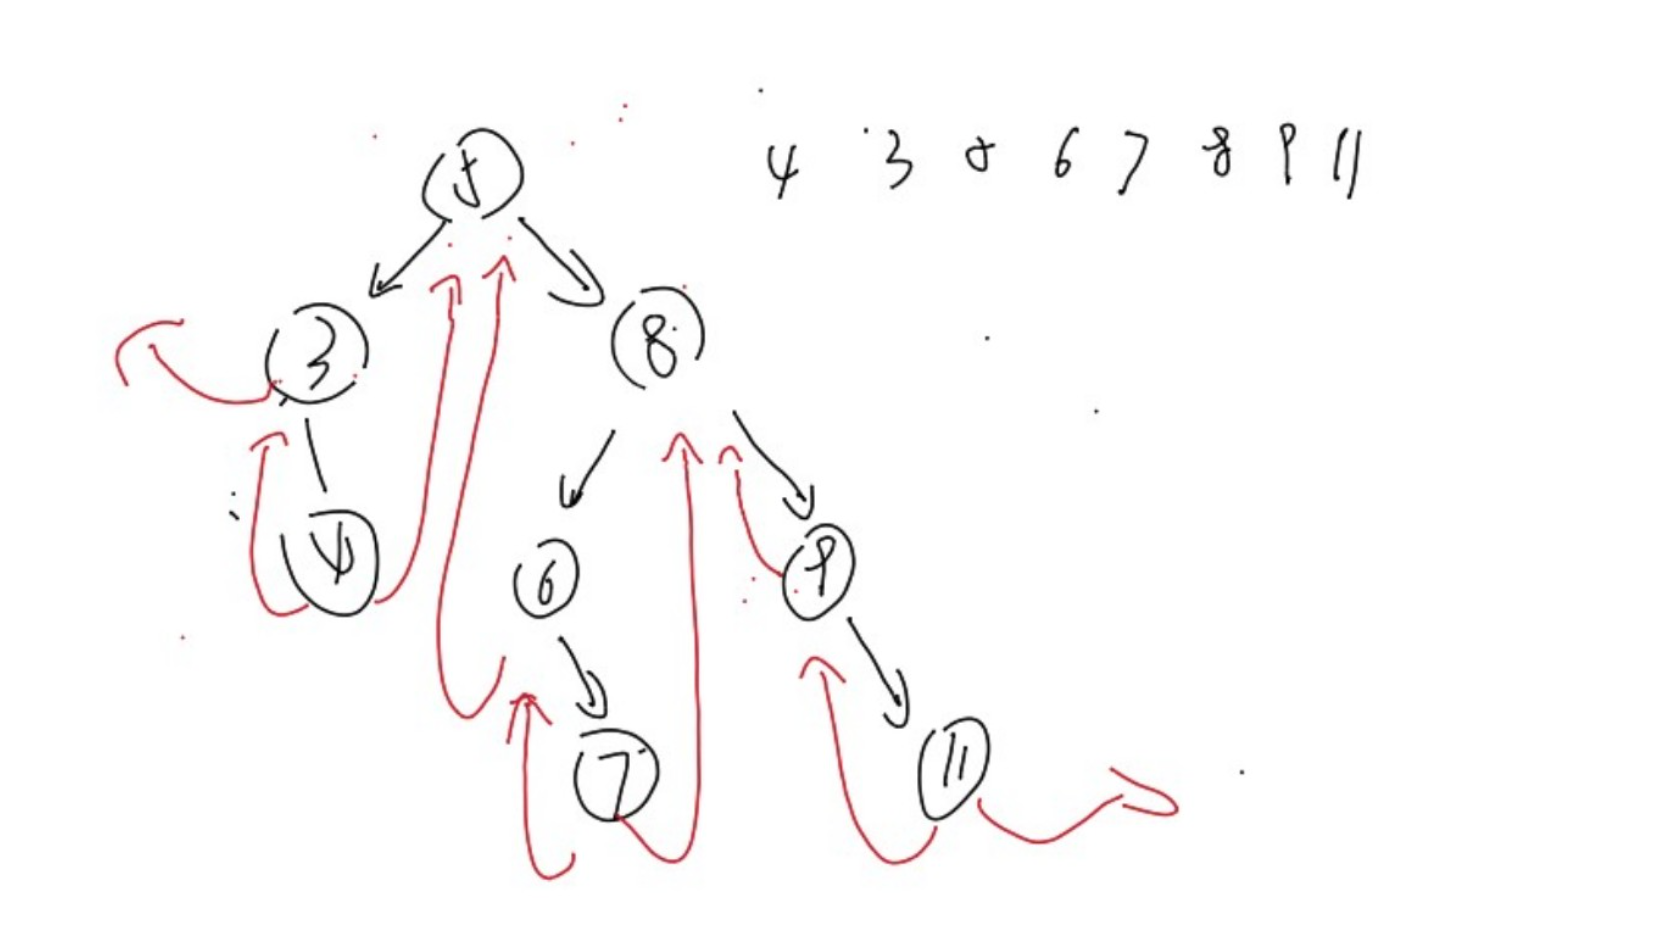 4 3 8 6 7 8 9 11
5
3 8
4 6 9
7 11